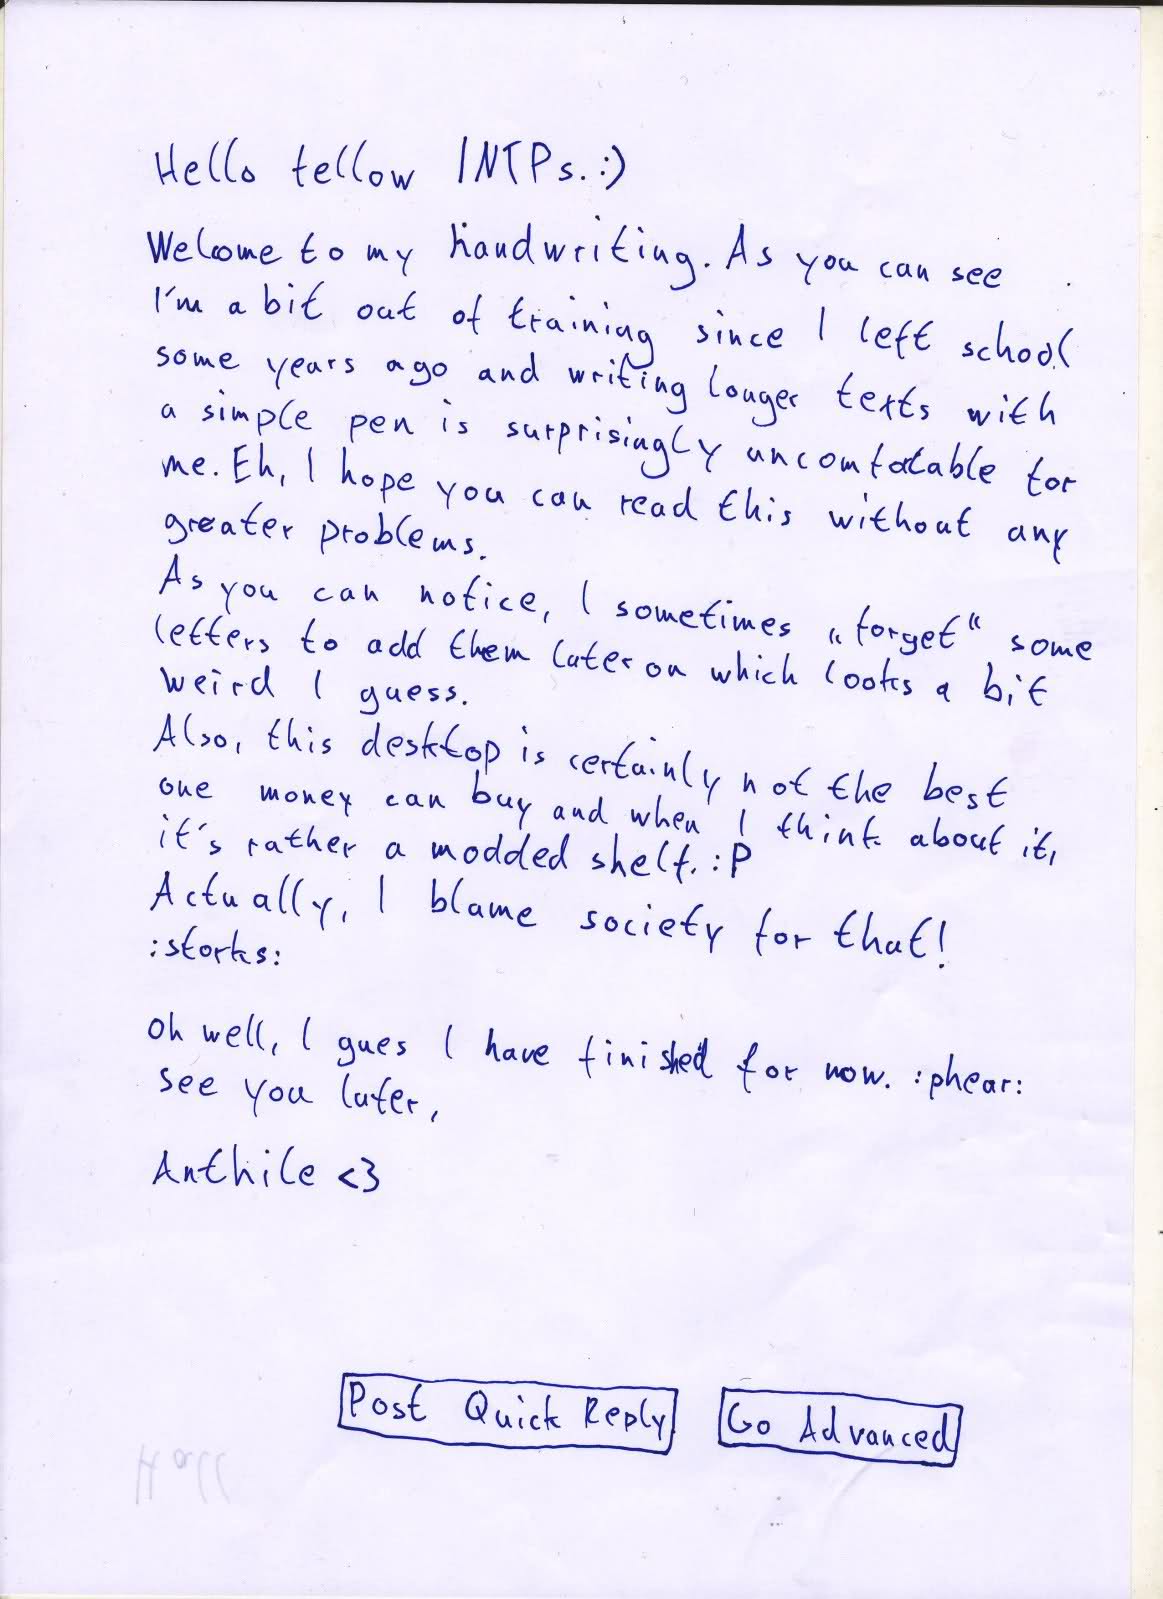 Hello fellow INTPs. :)
Welcome to my handwriting. As you can see
I'm a bit out of training since I left school
some years ago and writing longer texts with
a simple pen is surprisingly uncomfotable for
me. Eh, I hope you can read this without any
greater problems.
As you can notice, I sometimes „forget“ some
letters to add them later on which looks a bit
weird I guess.
Also, this desktop is certainly not the best
one money can buy and when I think about it,
it's rather a modded shelf. :P
Actually, I blame society for that!
:storks:
Oh well, I gues I have finished for now. :phear:
See you later,
Anthile <3
Post Quick Reply Go Advanced